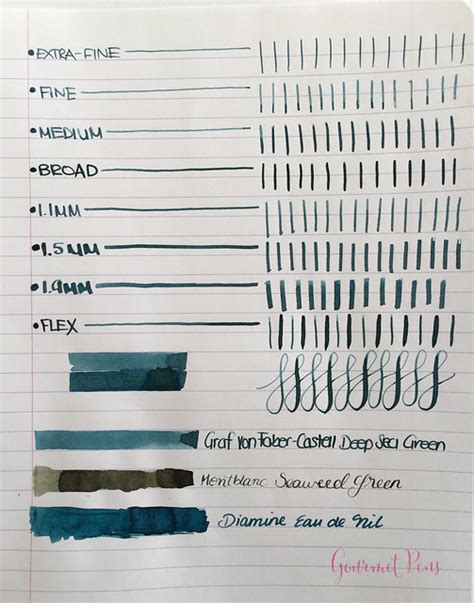 •EXTRA-FINE
•FINE
•MEDIUM
•BROAD
•1.1MM
•1.5MM
•1.9MM
•FLEX
Graf von Faber-Castell Deep Sea Green
Montblanc Seaweed Green
Diamine Eau de Nil
Gourmet Pens